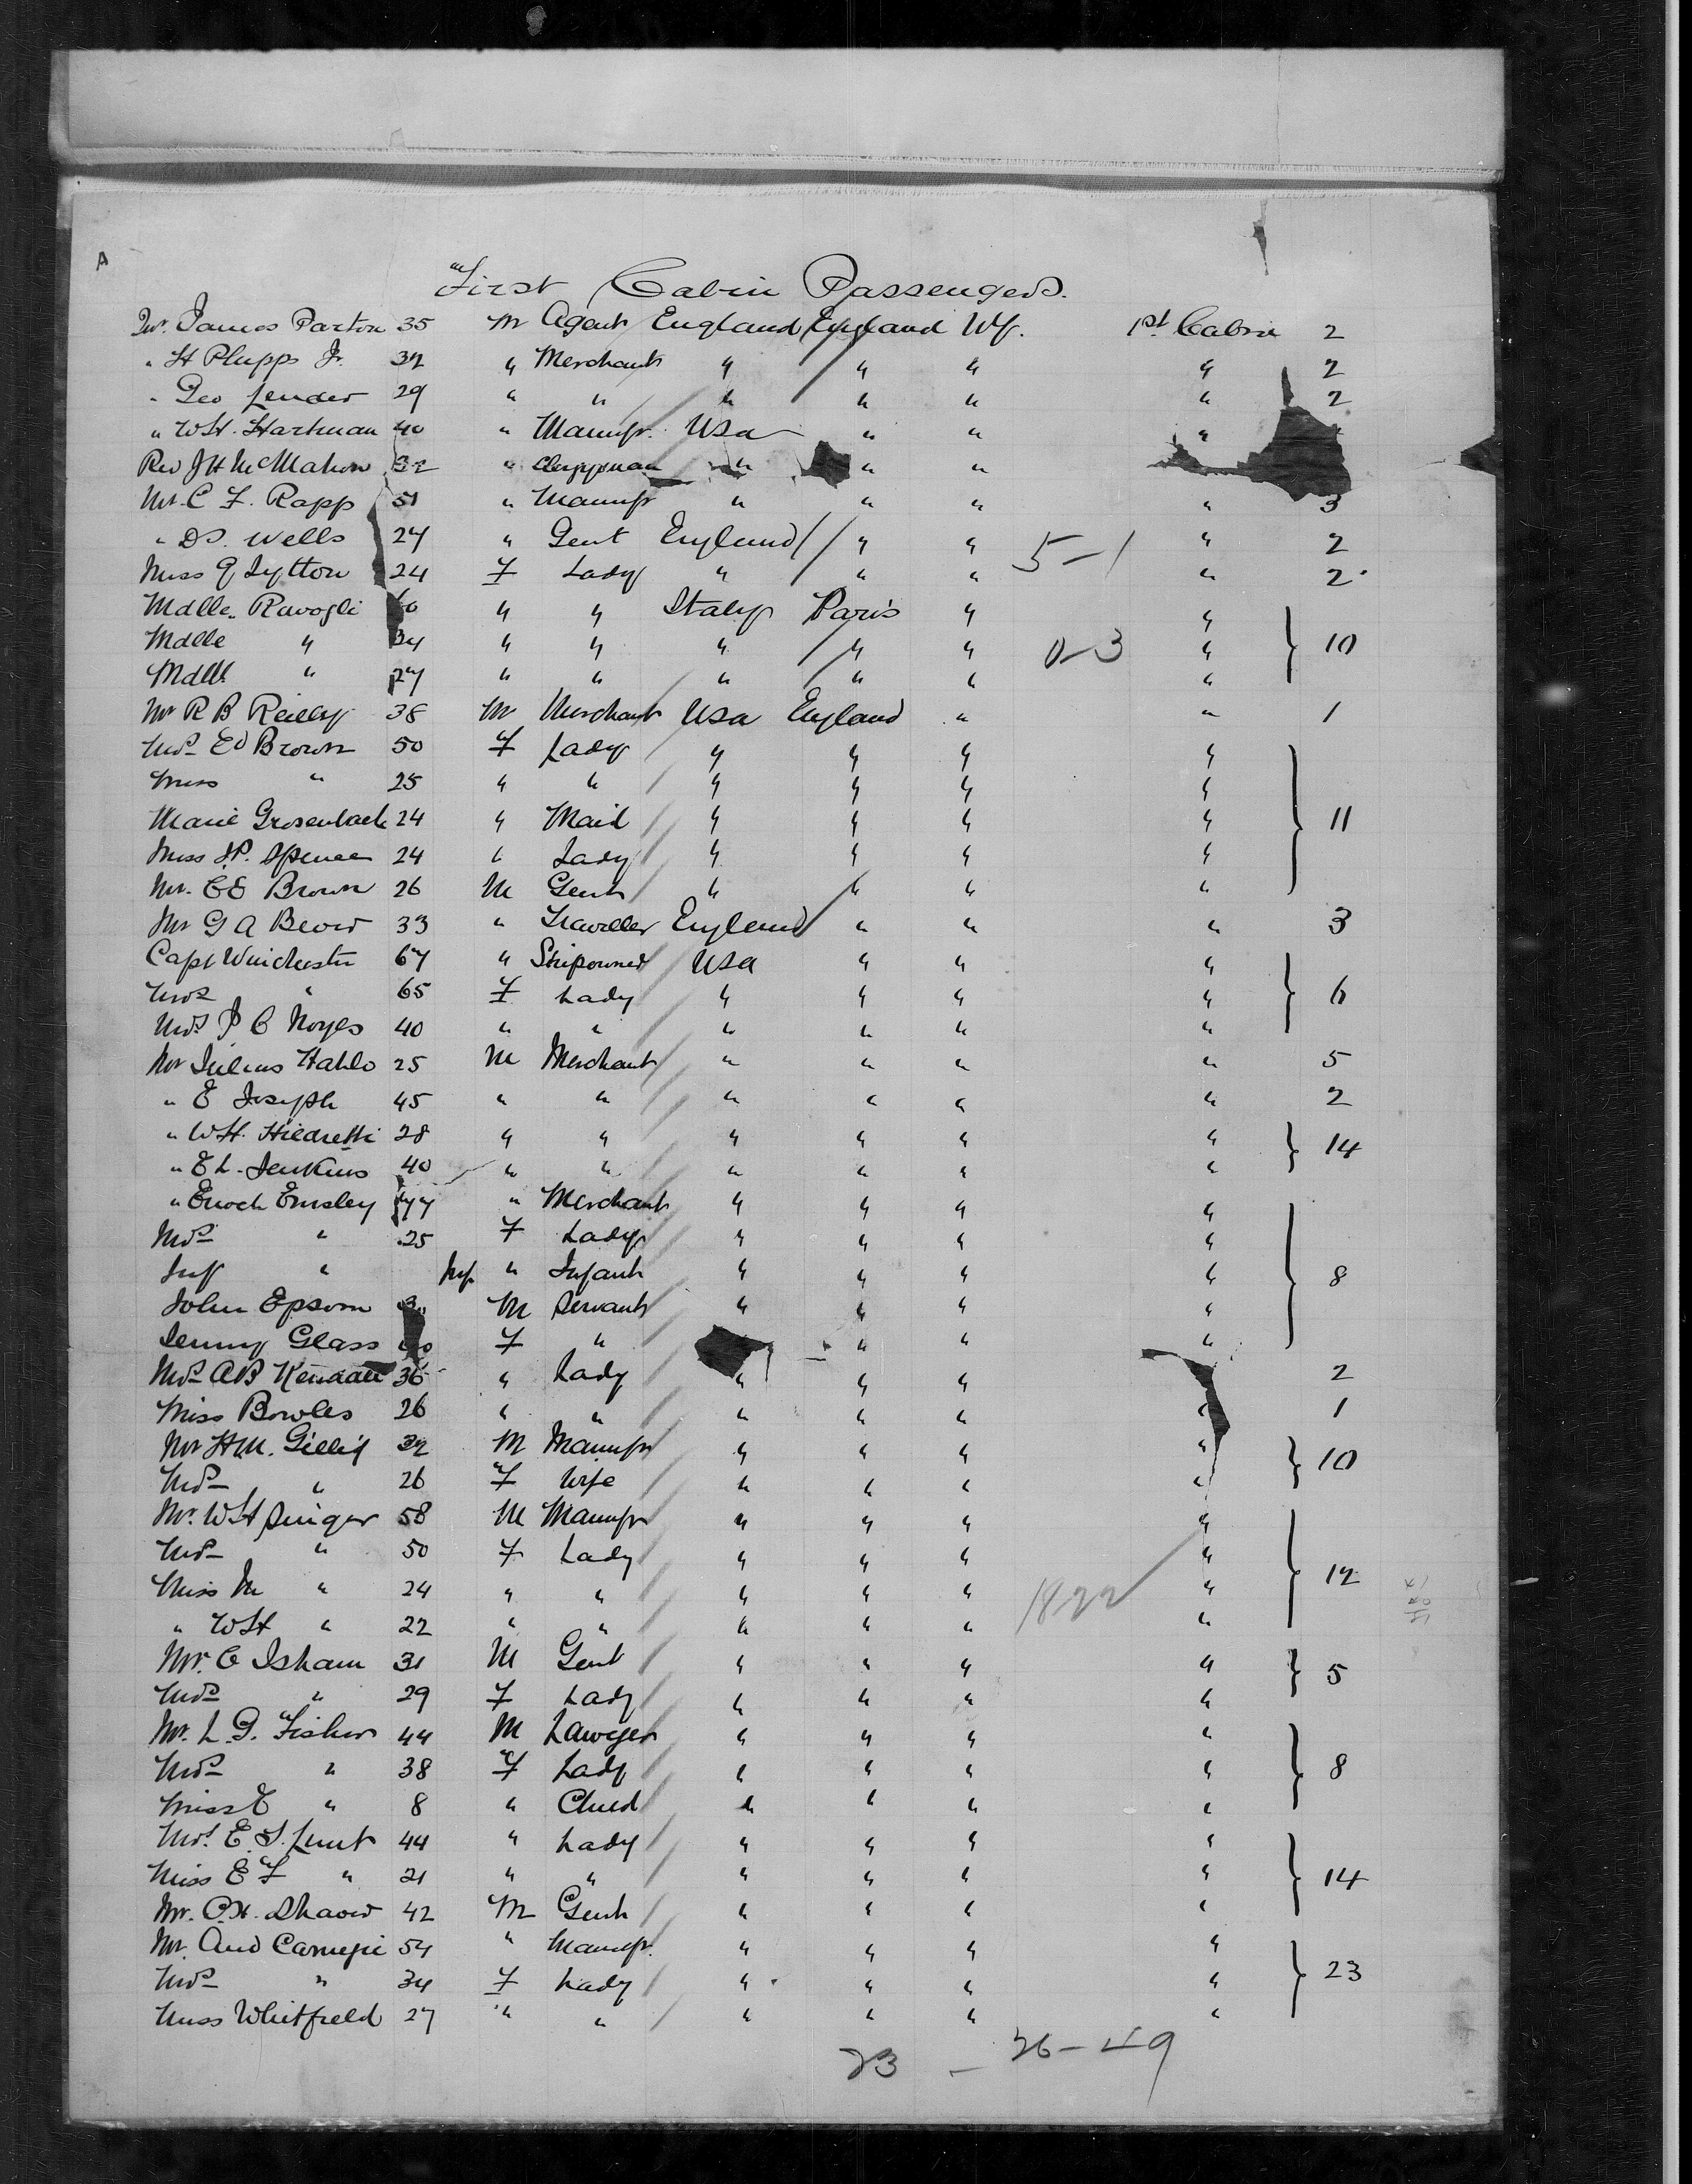 A
First Cabin Passengers.
Mr. James Parton 35 M Agent England England Wf. 1st Cabin 2
" H Phipps Jr. 32 " Merchant " " " " 2
" Geo Lender 29 " " " " " " 2
" W.H. Hartman 40 " Manufr. USa " " "
Rev J H McMahon 32 " Clergyman " " "
Mr. C F. Rapp 51 " Manufr " " " " 3
" D.S. Wells 27 " Gent England " " 5-1 " 2
Miss G Lytton 24 F Lady " " " " 2
Mdlle. Ravogli " " Italy Paris " "
Mdlle " 34 " " " " " 0-3 " } 10
Mdlle " 27 " " " " " "
Mr R B Reilly 38 M Merchant USa England " " 1
Mrs Ed Brown 50 F Lady " " " "
Miss " 25 " " " " " "
Marie Grosenbach 24 " Maid " " " " } 11
Miss J.P. Spence 24 " Lady " " " "
Mr. C E Brown 26 M Gent " " " "
Mr G A Beow 33 " Traveller England " " " 3
Capt Winchester 67 " Shipowner USa " " "
Mrs " 65 F Lady " " " " } 6
Mrs P C Noyes 40 " " " " " "
Mr Julius Hahlo 25 M Merchant " " " " 5
" E Joseph 45 " " " " " " 2
" W.H. Hildreth 28 " " " " " " } 14
" E L. Jenkins 40 " " " " " "
" Enoch Ensley " Merchant " " " "
Mrs " 25 F Lady " " " "
Inf " Inf. " Infant " " " " } 8
John Epsom M Servant " " " "
Jenny Glass F " " " "
Mrs A B Kendall 36 " Lady " " " 2
Miss Bowles 26 " " " " " " 1
Mr H.M. Gillig 32 M Manufr " " " " } 10
Mrs " 26 F Wife " " " "
Mr. W H Singer 58 M Manufr " " " "
Mrs " 50 F Lady " " " "
Miss M " 24 " " " " " 18-22 " } 12
" W H " 22 " " " " " "
Mr. C Isham 31 M Gent " " " " } 5
Mrs " 29 F Lady " " " "
Mr. L. G. Fisher 44 M Lawyer " " " "
Mrs " 38 F Lady " " " " } 8
Miss E " 8 " Child " " " "
Mrs. E. S. Lunt 44 " Lady " " " "
Miss E F " 21 " " " " " " } 14
Mr. C.H. Shaow 42 M Gent " " " "
Mr. And Carnegie 54 " Manufr. " " " "
Mrs " 34 F Lady " " " " } 23
Miss Whitfield 27 " " " " " "
23 - 26-49